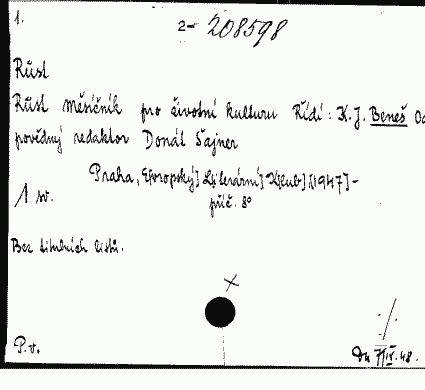 1.
2-208598
Růst
Růst Měsíčník pro životní kulturu Řídí: K.J. Beneš Od
povědný redaktor Donát Šajner
Praha, E[vropský] L[iterární] K[lub] [1947]-
1 sv.
příč. 8°
Bez titulních listů.
P.v.